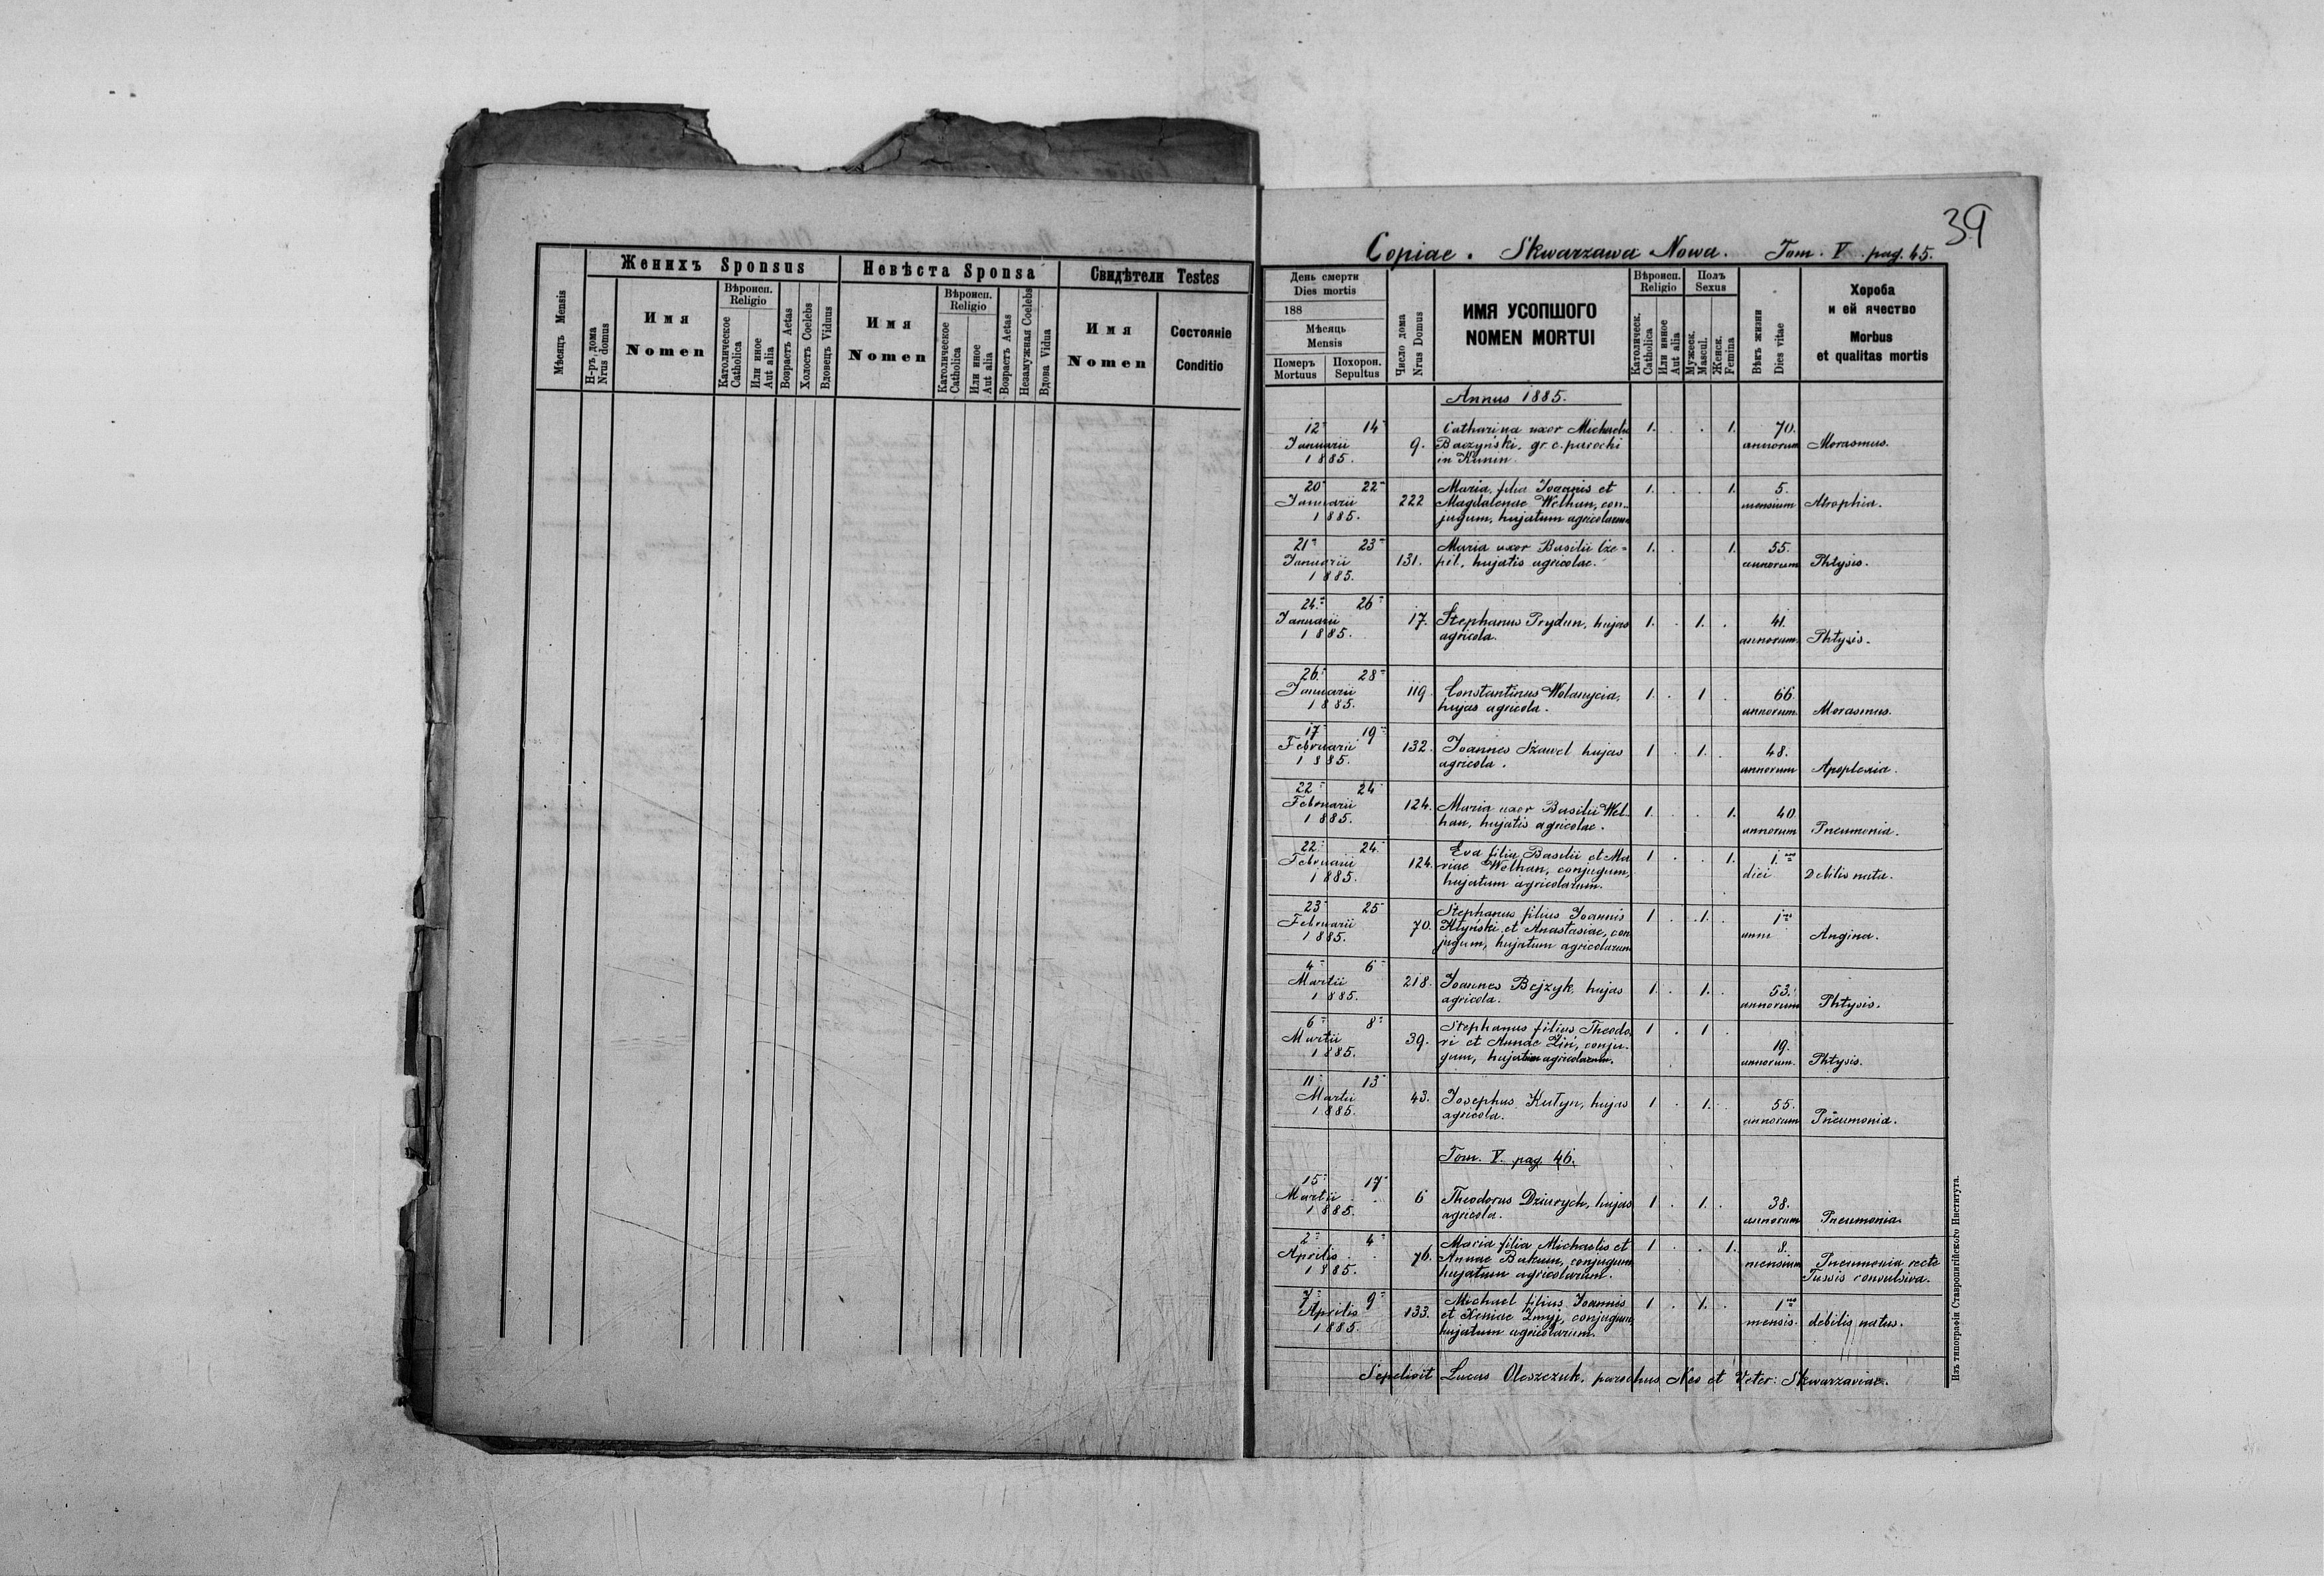 Женихъ Sponsus
Невѣста Sponsa
Свидѣтели Testes
Мѣсяцъ Mensis
Н-ръ дома
Nrus domus
Имя
Nomen
Вѣроисп.
Religio
Католическое
Catholica
Или иное
Aut alia
Возрастъ Aetas
Холостъ Coelebs
Вдовецъ Viduus
Имя
Nomen
Вѣроисп.
Religio
Католическое
Catholica
Или иное
Aut alia
Возрастъ Aetas
Незамужная Coelebs
Вдова Vidua
Имя
Nomen
Состояніе
Conditio
39
Copiae. Skwarzawa Nowa. Tom. V pag. 45.
День смерти
Dies mortis
188
Мѣсяць
Mensis
Померъ
Mortuus
Похорон.
Sepultus
Число дома
Nrus Domus
ИМЯ УСОПШОГО
NOMEN MORTUI
Вѣроисп.
Religio
Католическ.
Catholica
Или инное
Aut alia
Полъ
Sexus
Мужеск.
Mascul.
Женск.
Femina
Вѣкъ жизни
Dies vitae
Хороба
и ей ячество
Morbus
et qualitas mortis
Annus 1885.
12 14 Catharina uxor Michaelis 1. . . 1. 70.
Januarii 9. Baczyński, gr. c. parochi annorum Morasmus.
1885. in Kunin.
20 22 Maria, filia Joannis et 1. . . 1. 5.
Januarii 222 Magdalenae Welhan, con- mensium Atrophia.
1885. jugum, hujatum agricolarum
21 23 Maria uxor Basilii Cze= 1. . 1. 55.
Januarii 131. pil, hujatis agricolae. annorum Phtysis.
1885.
24. 26
Januarii 17. Stephanus Prydun, hujas 1. . 1. . 41.
1885. agricola. annorum Phtysis.
26. 28
Januarii 119. Constantinus Wolanycia, 1. . 1 . 66.
1885. hujas agricola. annorum Morasmus.
17 19
Februarii 132. Joannes Szawel hujas 1 . 1. . 48.
1885. agricola. annorum Apoplexia.
22 24
Februarii 124. Maria uxor Basilii Wel- 1. . . 1. 40.
1885. han, hujatis agricolae. annorum Pneumonia.
22 24 Eva filia Basilii et Ma 1 . . 1. 1.
Februarii 124. riae Welhan, conjugum, diei Debilis nata.
1885. hujatum agricolarum.
23 25 Stephanus filius Joannis 1 . 1. . 1
Februarii 70. Kłyński et Anastasiae, con anni Angina.
1885. jugum, hujatum agricolarum
4 6
Martii 218. Joannes Bejzyk, hujas 1. . 1. . 53.
1885. agricola. annorum Phtysis.
6 8 Stephanus filius Theodo- 1 . 1 .
Martii 39. ri et Annae Ziń, conju- 19.
1885. gum, hujatum agricolarum. annorum. Phtysis.
11 13
Martii 43. Josephus Kutyn, hujas 1 . 1. . 55.
1885. agricola. annorum Pneumonia.
Tom. V. pag. 46.
15 17
Martii 6 Theodorus Dziurych, hujas 1 . 1. . 38.
1885. agricola. annorum Pneumonia.
2 4 Maria filia Michaelis et 1 . . 1. 8.
Aprilis 76. Annae Bakum, conjugum mensium Pneumonia recte
1885. hujatum agricolarum. Tussis convulsiva.
7 9 Michael filius Joannis 1 . 1. . 1
Aprilis 133. et Xeniae Zmyj, conjugum mensis. debilis natus.
1885. hujatum agricolarum.
Sepelivit Lucas Oleszczuk, parochus Neo et Veter: Skwarzaviae.
Изъ типографіи Ставропигійского Института.